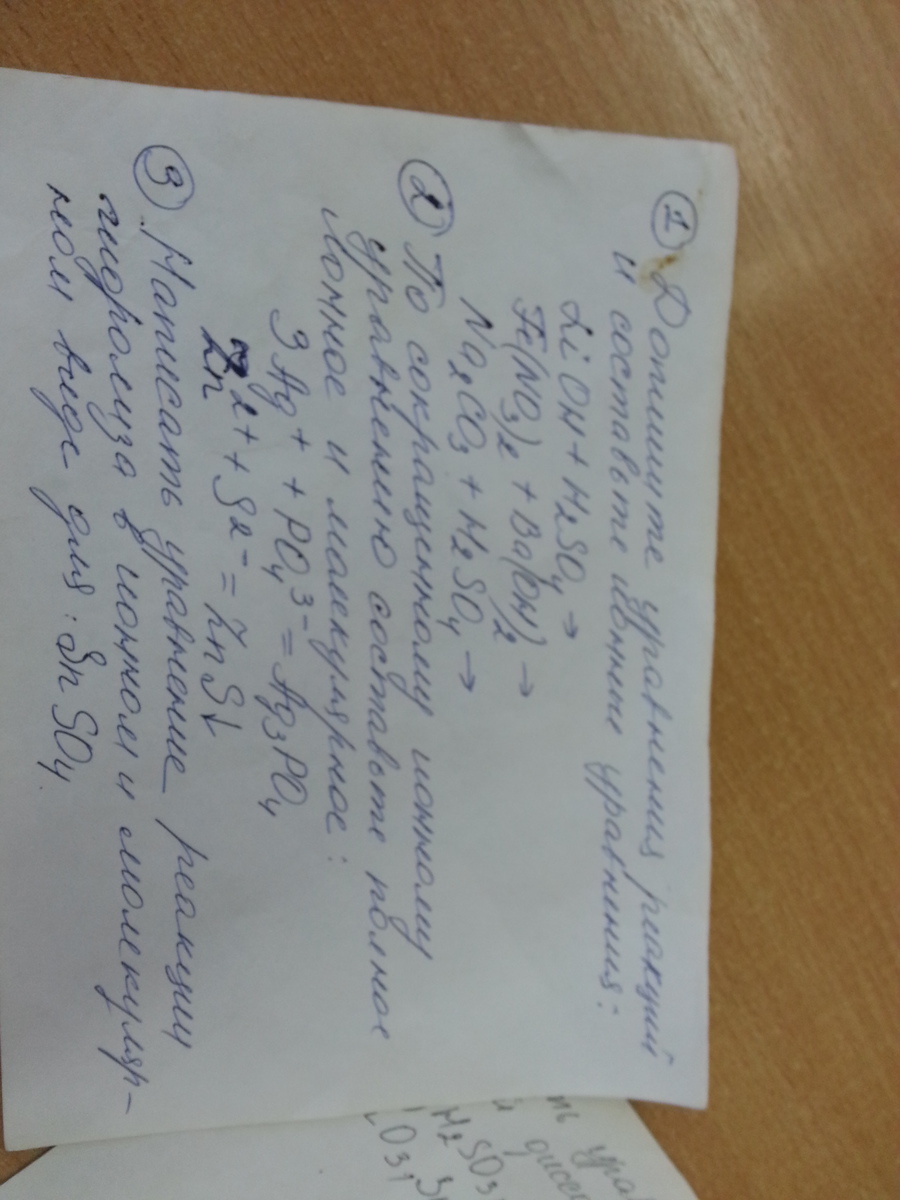 ① Допишите уравнения реакций
и составьте ионные уравнения:
LiOH + H₂SO₄ →
Fe(NO₃)₂ + Ba(OH)₂ →
Na₂CO₃ + H₂SO₄ →
② По сокращенному ионному
уравнению составьте полное
ионное и молекулярное:
3Ag⁺ + PO₄³⁻ = Ag₃PO₄
Zn²⁺ + S²⁻ = ZnS↓
③ Написать уравнение реакции
гидролиза в ионном и молекуляр-
ном виде для: SnSO₄.
H₂SO₃